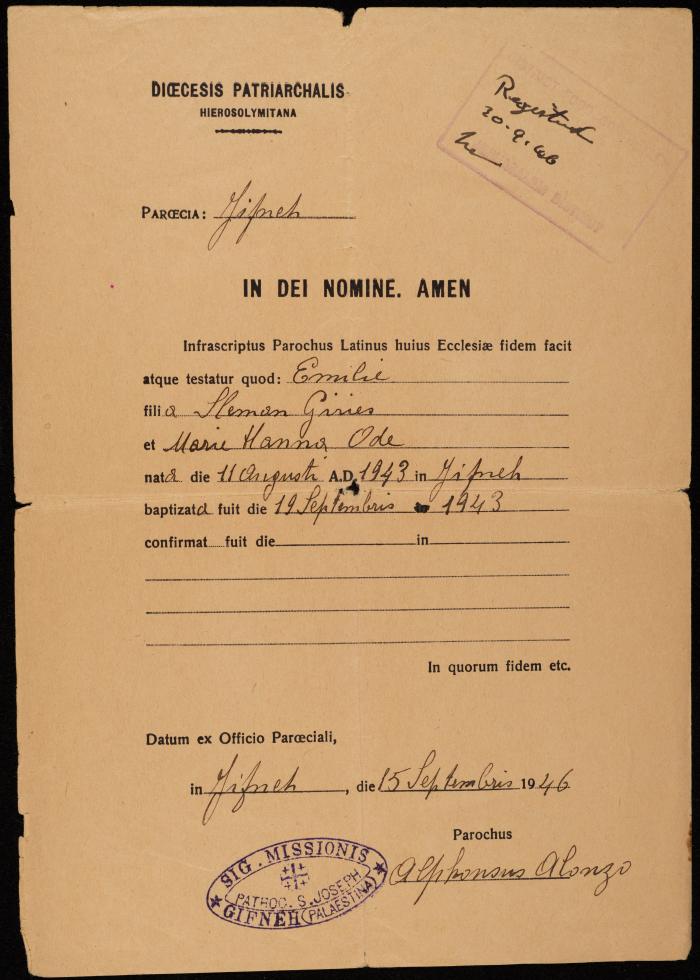 DIŒCESIS PATRIARCHALIS
HIEROSOLYMITANA
Registered
20.9.46
PARŒCIA: Jifneh
IN DEI NOMINE. AMEN
Infrascriptus Parochus Latinus huius Ecclesiæ fidem facit
atque testatur quod: Emilie
filia Sleman Giries
et Marie Hanna Ode
nata die 11 Augusti A.D. 1943 in Jifneh
baptizata fuit die 19 Septembris 1943
confirmat fuit die in
In quorum fidem etc.
Datum ex Officio Parœciali,
in Jifneh, die 15 Septembris 1946
Parochus
Alphonsus Alonzo
SIG. MISSIONIS
PATROC. S. JOSEPH
GIFNEH (PALAESTINA)